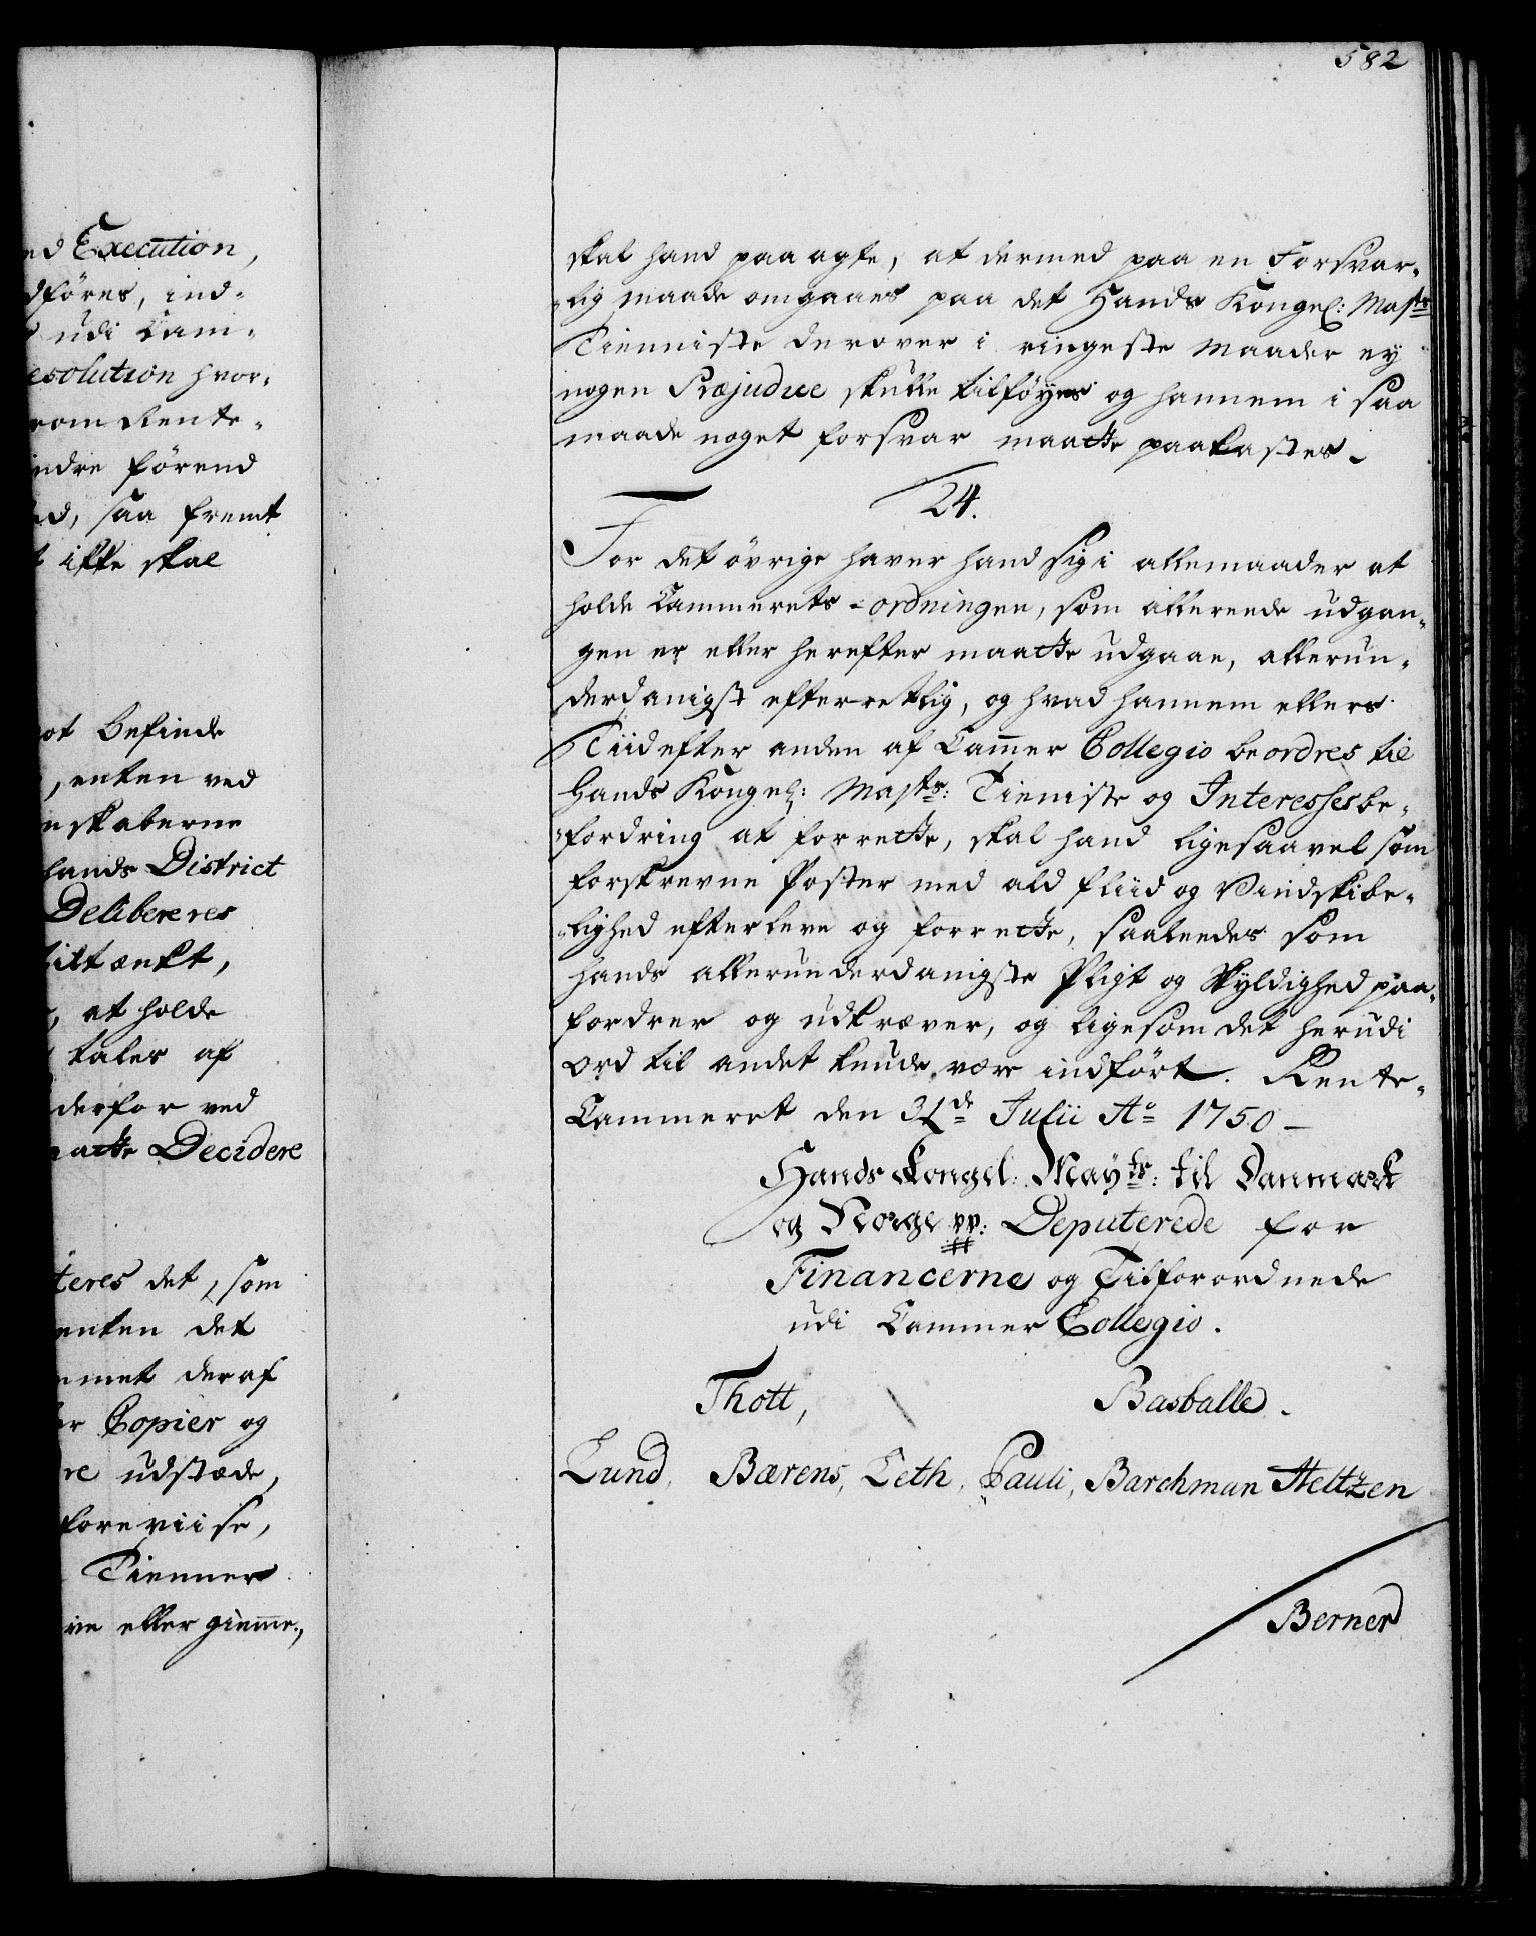 582
ed Execution,
dföres, ind-
udi Cam-
esolution hvor-
som Rente-
indre förend
saa fremt
ikke skal
ot befinde
, enten ved
nskaberne
hands District
Delibereres
tiltænkt,
, at holde
taler af
derfor ved
atte Decidere
teres det, som
enten det
mmet deraf
er Copier og
re udstæde,
foreviise,
Tienner
ive eller giemme,
skal hand paaagte, at dermed paa en Forsvar-
-lig maade omgaaes paa det Hands Kongel: Majts
Tienniste derover i ringeste Maader ey
nogen Præjudice skulle tilföyes og hannem i saa
maade noget forsvar maatte paakastes.
24.
For det övrige haver hand sig i allemaader at
holde Cammerets-ordningen, som allerende udgan-
gen er eller herefter maatte udgaae, allerun-
derdanigst efterretlig, og hvad hannem ellers
Tiid efter anden af Cammer Collegio beordres til
Hands Kongel: Majts: Tieniste og Interesses be-
-fordring at forrette, skal hand ligesaavel som
forskrevne Poster med ald fliid og Vindskibe-
-lighed efterleve og forrette, saaleedes som
hands allerunderdanigste Pligt og Skyldighed paa-
fordrer og udkræver, og ligesom det herudi
ord til andet kunde være indfört. Rente-
Cammeret den 31de Julii Ao 1750 –
Hands Kongel: Mayts: til Danmark
og Norge pp: Deputerede for
Financerne og Tilforordnede
udi Cammer Collegio.
Thott, Basballe.
Lund, Bærens, Leth, Pauli, Barchman Heltzen
Berner